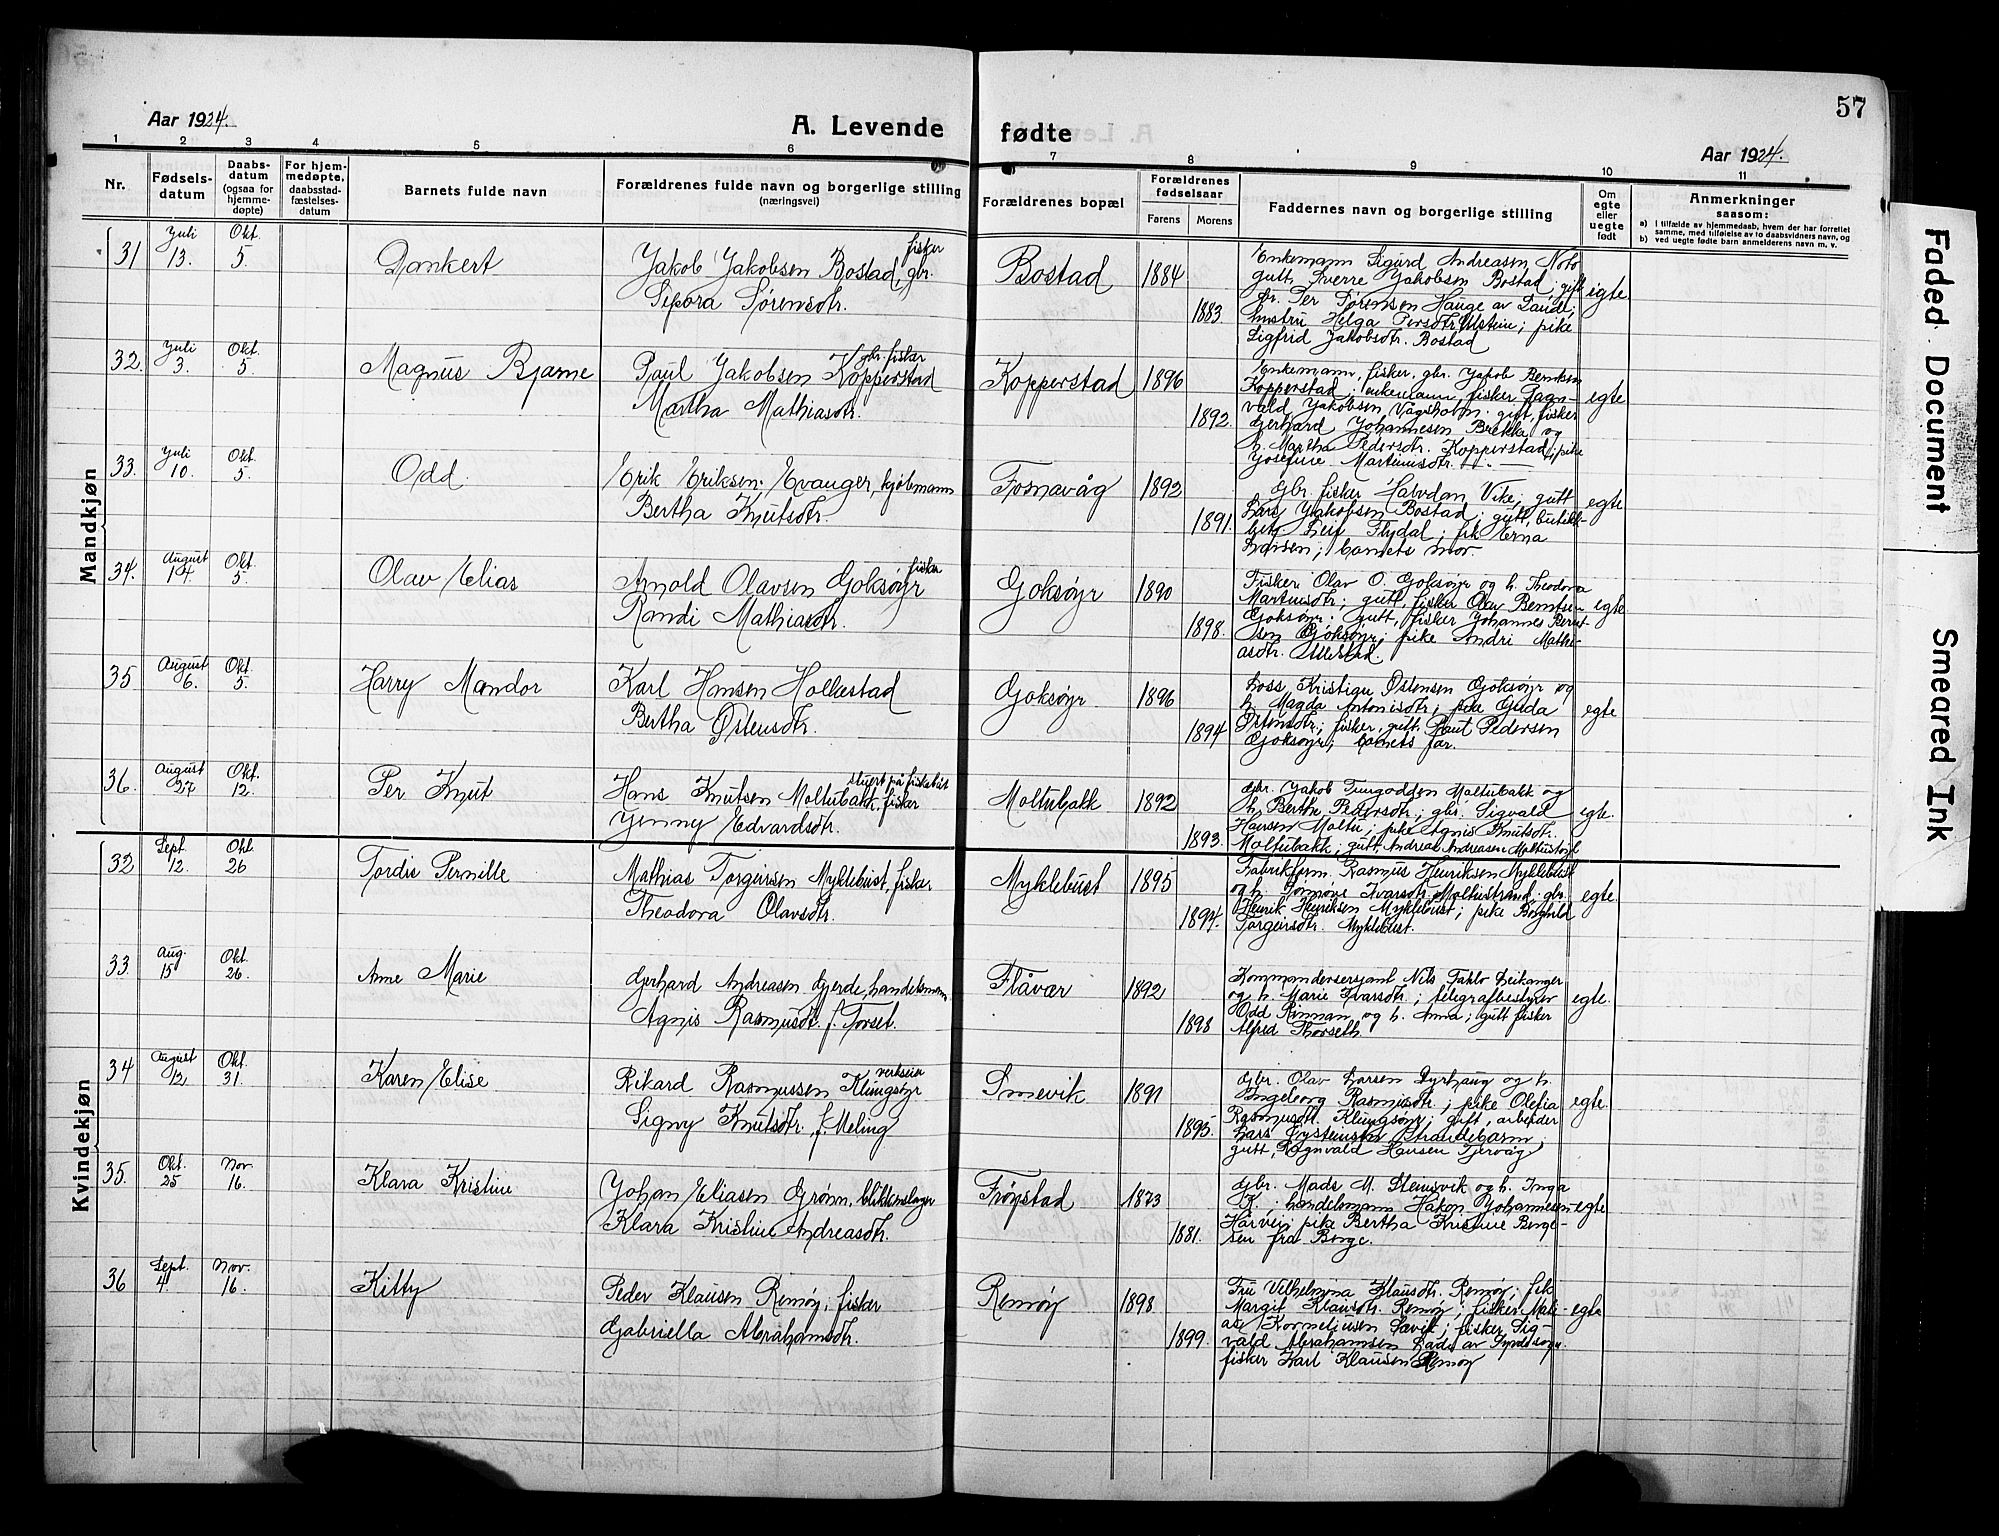 57
Aar 1924.
A. Levende fødte
Aar 1924.
1 2 3 4 5 6 7 8 9 10 11
Nr.
Fødsels-
datum
Daabs-
datum
(ogsaa for
hjemme-
døpte)
For hjem-
medøpte,
daabsstad-
fæstelses-
datum
Barnets fulde navn
Forældrenes fulde navn og borgerlige stilling
(næringsvei)
Forældrenes bopæl
Forældrenes
fødselsaar
Farens
Morens
Faddernes navn og borgerlige stilling
Om
egte
eller
uegte
født
Anmerkninger
saasom:
a) I tilfælde av hjemmedaab, hvem der har forrettet
samme, med tilføielse av to daabsvidners navn, og
b) ved uegte fødte barn anmelderens navn m. v.
Mandkjøn
31 Juli 13. Okt. 5.
Dankert
Jakob Jakobsen Bostad, fisker gbr.
Sepora Sørensdtr.
Bostad
1884
1883.
Enkemann Sigurd Andreasen Notø
gutt, Sverre Jakobsen Bostad; gift
gbr. Per Sørensen Hauge av Sande;
hustru Helga Persdtr. Ulstein; pike
Sigfrid Jakobsdtr. Bostad
egte
32. Juli 3. Okt. 5.
Magnus Bjarne
Paul Jakobsen Kopperstad gbr. fisker
Martha Mathiasdtr.
Kopperstad
1896
1892.
Enkemann, fisker, gbr. Jakob Berntsen
Kopperstad; enkemann, fisker Ragn-
vald Jakobsen, Vågsholm; gift, fisker
Gerhard Johannesen Brekke og
h. Martha Pedersdtr. Kopperstad; pike
Josefine Martinusdtr. — " —
egte
33. Juli 10. Okt. 5.
Odd
Erik Eriksen Evanger, kjøbmann
Bertha Knutsdtr.
Fosnavåg
1892
1891.
Gbr. fisker Halvdan Vike; gutt
Lars Jakobsen Bostad; gutt, butikk-
betj. Leif Flydal; pik Erna
Larsen; barnets mor
egte
34. August 14. Okt. 5.
Olav Elias
Arnold Olavsen Goksøyr fisker
Randi Mathiasdtr.
Goksøyr
1890
1898.
Fisker Olav O. Goksøyr og h. Theodora
Martinsdtr; gutt, fisker Olav Berntsen
Goksøyr; gutt, fisker Johannes Bernt-
sen Goksøyr; pike Andri Mathi-
asdtr.
egte
35 August 6. Okt. 5.
Harry Mandor
Karl Hansen Holkestad
Bertha Østensdtr.
Goksøyr
1896
1894
Loss Kristian Østensen Goksøyr og
h. Magda Antonisdtr; pike Gyda
Østensdtr; fisker, gutt Paul Pedersen
Goksøyr; barnets far.
egte
36. August 27 Okt. 12.
Per Knut
Hans Knutsen Moltubakk, fisker stuert på fiskebåt
Jenny Edvardsdtr.
Moltubakk
1892
1893.
gbr. Jakob Tungodden Moltubakk og
h. Berthe Pedersdtr; gbr. Sigvald
Hansen Moltu; pike Agnis Knutsdtr.
Moltubakk; gutt Andreas Andreasen
egte.
Kvindekjøn
32 Sept. 12. Okt. 26
Tordis Pernille
Mathias Torgeirsen Myklebust, fisker
Theodora Olavsdtr.
Myklebust
1895
1894.
Fabrikform. Rasmus Henriksen Myklebust
og h. Jørnøve Ivarsdtr. Moltustrand; gbr.
Henrik Henriksen Myklebust; pike Borghild
Torgeirsdtr. Myklebust.
egte.
33. Aug. 15 Okt. 26.
Anne Marie
Gerhard Andreasen Gjerde, handelsmann
Agnis Rasmusdtr. f. Torset.
Flåvær
1892
1898
Kommandersersjant Nils Leikanger
og h. Marie Ivarsdtr.; telegrafbestyrer
Odd Rinnan og h. Anna; gutt fisker
Alfred Thorseth.
egte.
34 August 12 Okt. 31.
Karen Elise
Rikard Rasmussen Klungsøyr verkseier
Signy Knutsdtr. f. Meling
Smevik
1891
1895.
gbr. Olav Larsen Dyrhaug og h.
Ingeborg Rasmusdtr.; pike Olefia
Rasmusdtr. Klungsøyr; gift, arbeider
Lars Øysteinsen Strandebarm;
gutt, Ragnvald Hansen Tjervåg
egte.
35. Okt. 25 Nov. 16.
Klara Kristine
Johan Eliasen Grønn, blikkenslager
Klara Kristine Andreasdtr.
Frøystad
1873
1881.
gbr. Mads M. Stemsvik og h. Inga
K.; handelsmann Håkon Johannesen
Harvei; pike Bertha Kristine Berge-
sen fra Borge.
egte
36 Sept. 4 Nov. 16.
Kitty
Peder Klausen Remøy, fisker
Gabriella Abrahamsdtr.
Remøy
1898
1899.
Fru Vilhelmina Klausdtr. Remøy; pik
Margit Klausdtr. Remøy; fisker Mati-
as Korneliusen Sævik; fisker Sig-
vald Abrahamsen Sade av
fisker Karl Klausen Remøy
egte
Faded Document
Smeared Ink